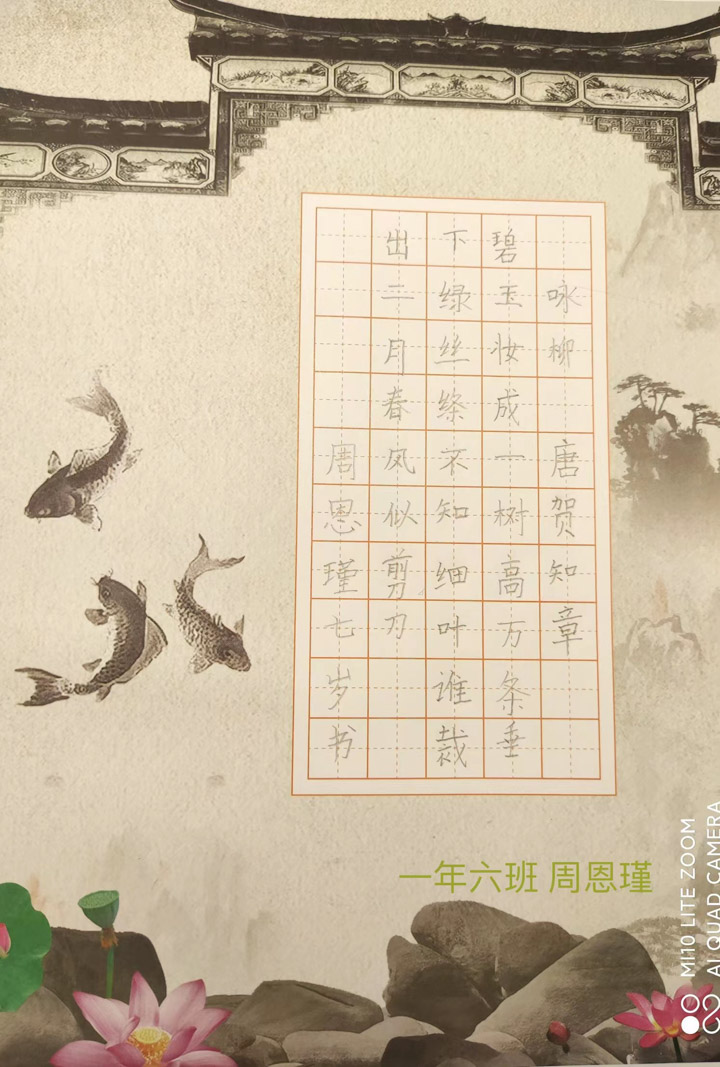 咏柳 唐贺知章
碧玉妆成一树高万条垂
下绿丝绦不知细叶谁裁
出二月春风似剪刀
周恩瑾七岁书
一年六班 周恩瑾
MI10 LITE ZOOM
AI QUAD CAMERA